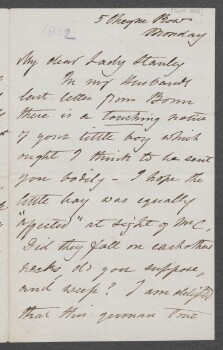 1852
5 Cheyne Row
Monday
My dear Lady Stanley
In my Husband's
last letter from Bonn
there is a touching notice
of your little boy which
ought I think to be sent
you bodily – I hope the
little boy was equally
"affected" at sight of Mr C.
Did they fall on each others
necks, do you suppose,
and weep? I am delighted
that this german tour